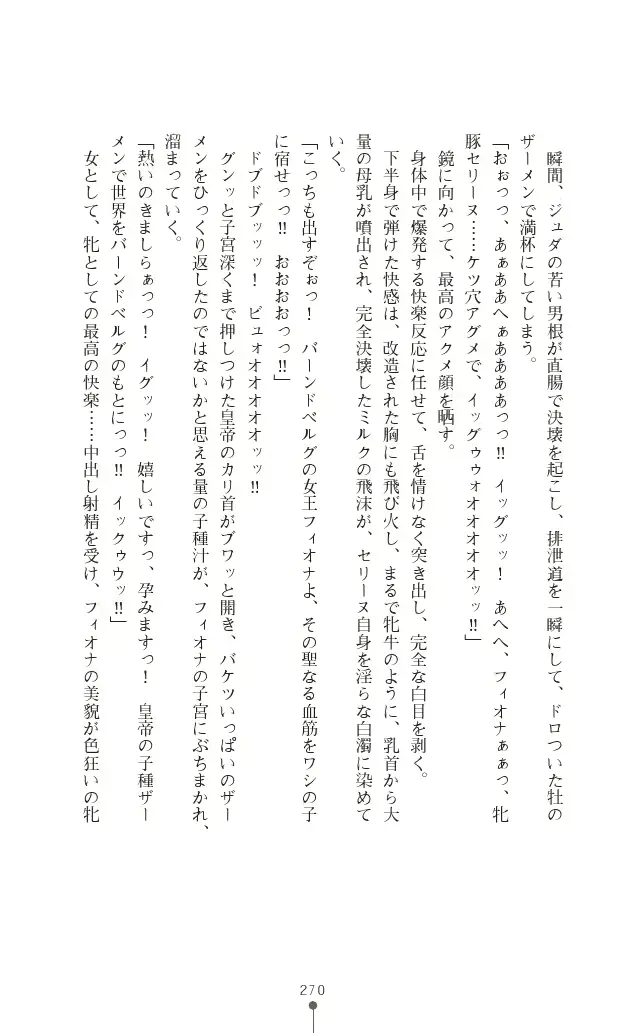 瞬間、ジュダの若い男根が直腸で決壊を起こし、排泄道を一瞬にして、ドロついた牡の
ザーメンで満杯にしてしまう。
「おぉっっ、あぁああへぁああああっっ‼　イッグッッ！　あへへ、フィオナぁぁっ、牝
豚セリーヌ……ケツ穴アグメで、イッグゥゥォオオオオオッッ‼」
鏡に向かって、最高のアクメ顔を晒す。
身体中で爆発する快楽反応に任せて、舌を情けなく突き出し、完全な白目を剥く。
下半身で弾けた快感は、改造された胸にも飛び火し、まるで牝牛のように、乳首から大
量の母乳が噴出され、完全決壊したミルクの飛沫が、セリーヌ自身を淫らな白濁に染めて
いく。
「こっちも出すぞぉっ！　バーンドベルグの女王フィオナよ、その聖なる血筋をワシの子
に宿せっっ‼　おおおおっっ‼」
ドブドブッッッ！　ビュォオオオオオッッ‼
グンッと子宮深くまで押しつけた皇帝のカリ首がブワッと開き、バケツいっぱいのザー
メンをひっくり返したのではないかと思える量の子種汁が、フィオナの子宮にぶちまかれ、
溜まっていく。
「熱いのきましらぁっっ！　イグッッ！　嬉しいですっ、孕みますっ！　皇帝の子種ザー
メンで世界をバーンドベルグのもとにっっ‼　イックゥウッ‼」
女として、牝としての最高の快楽……中出し射精を受け、フィオナの美貌が色狂いの牝
270